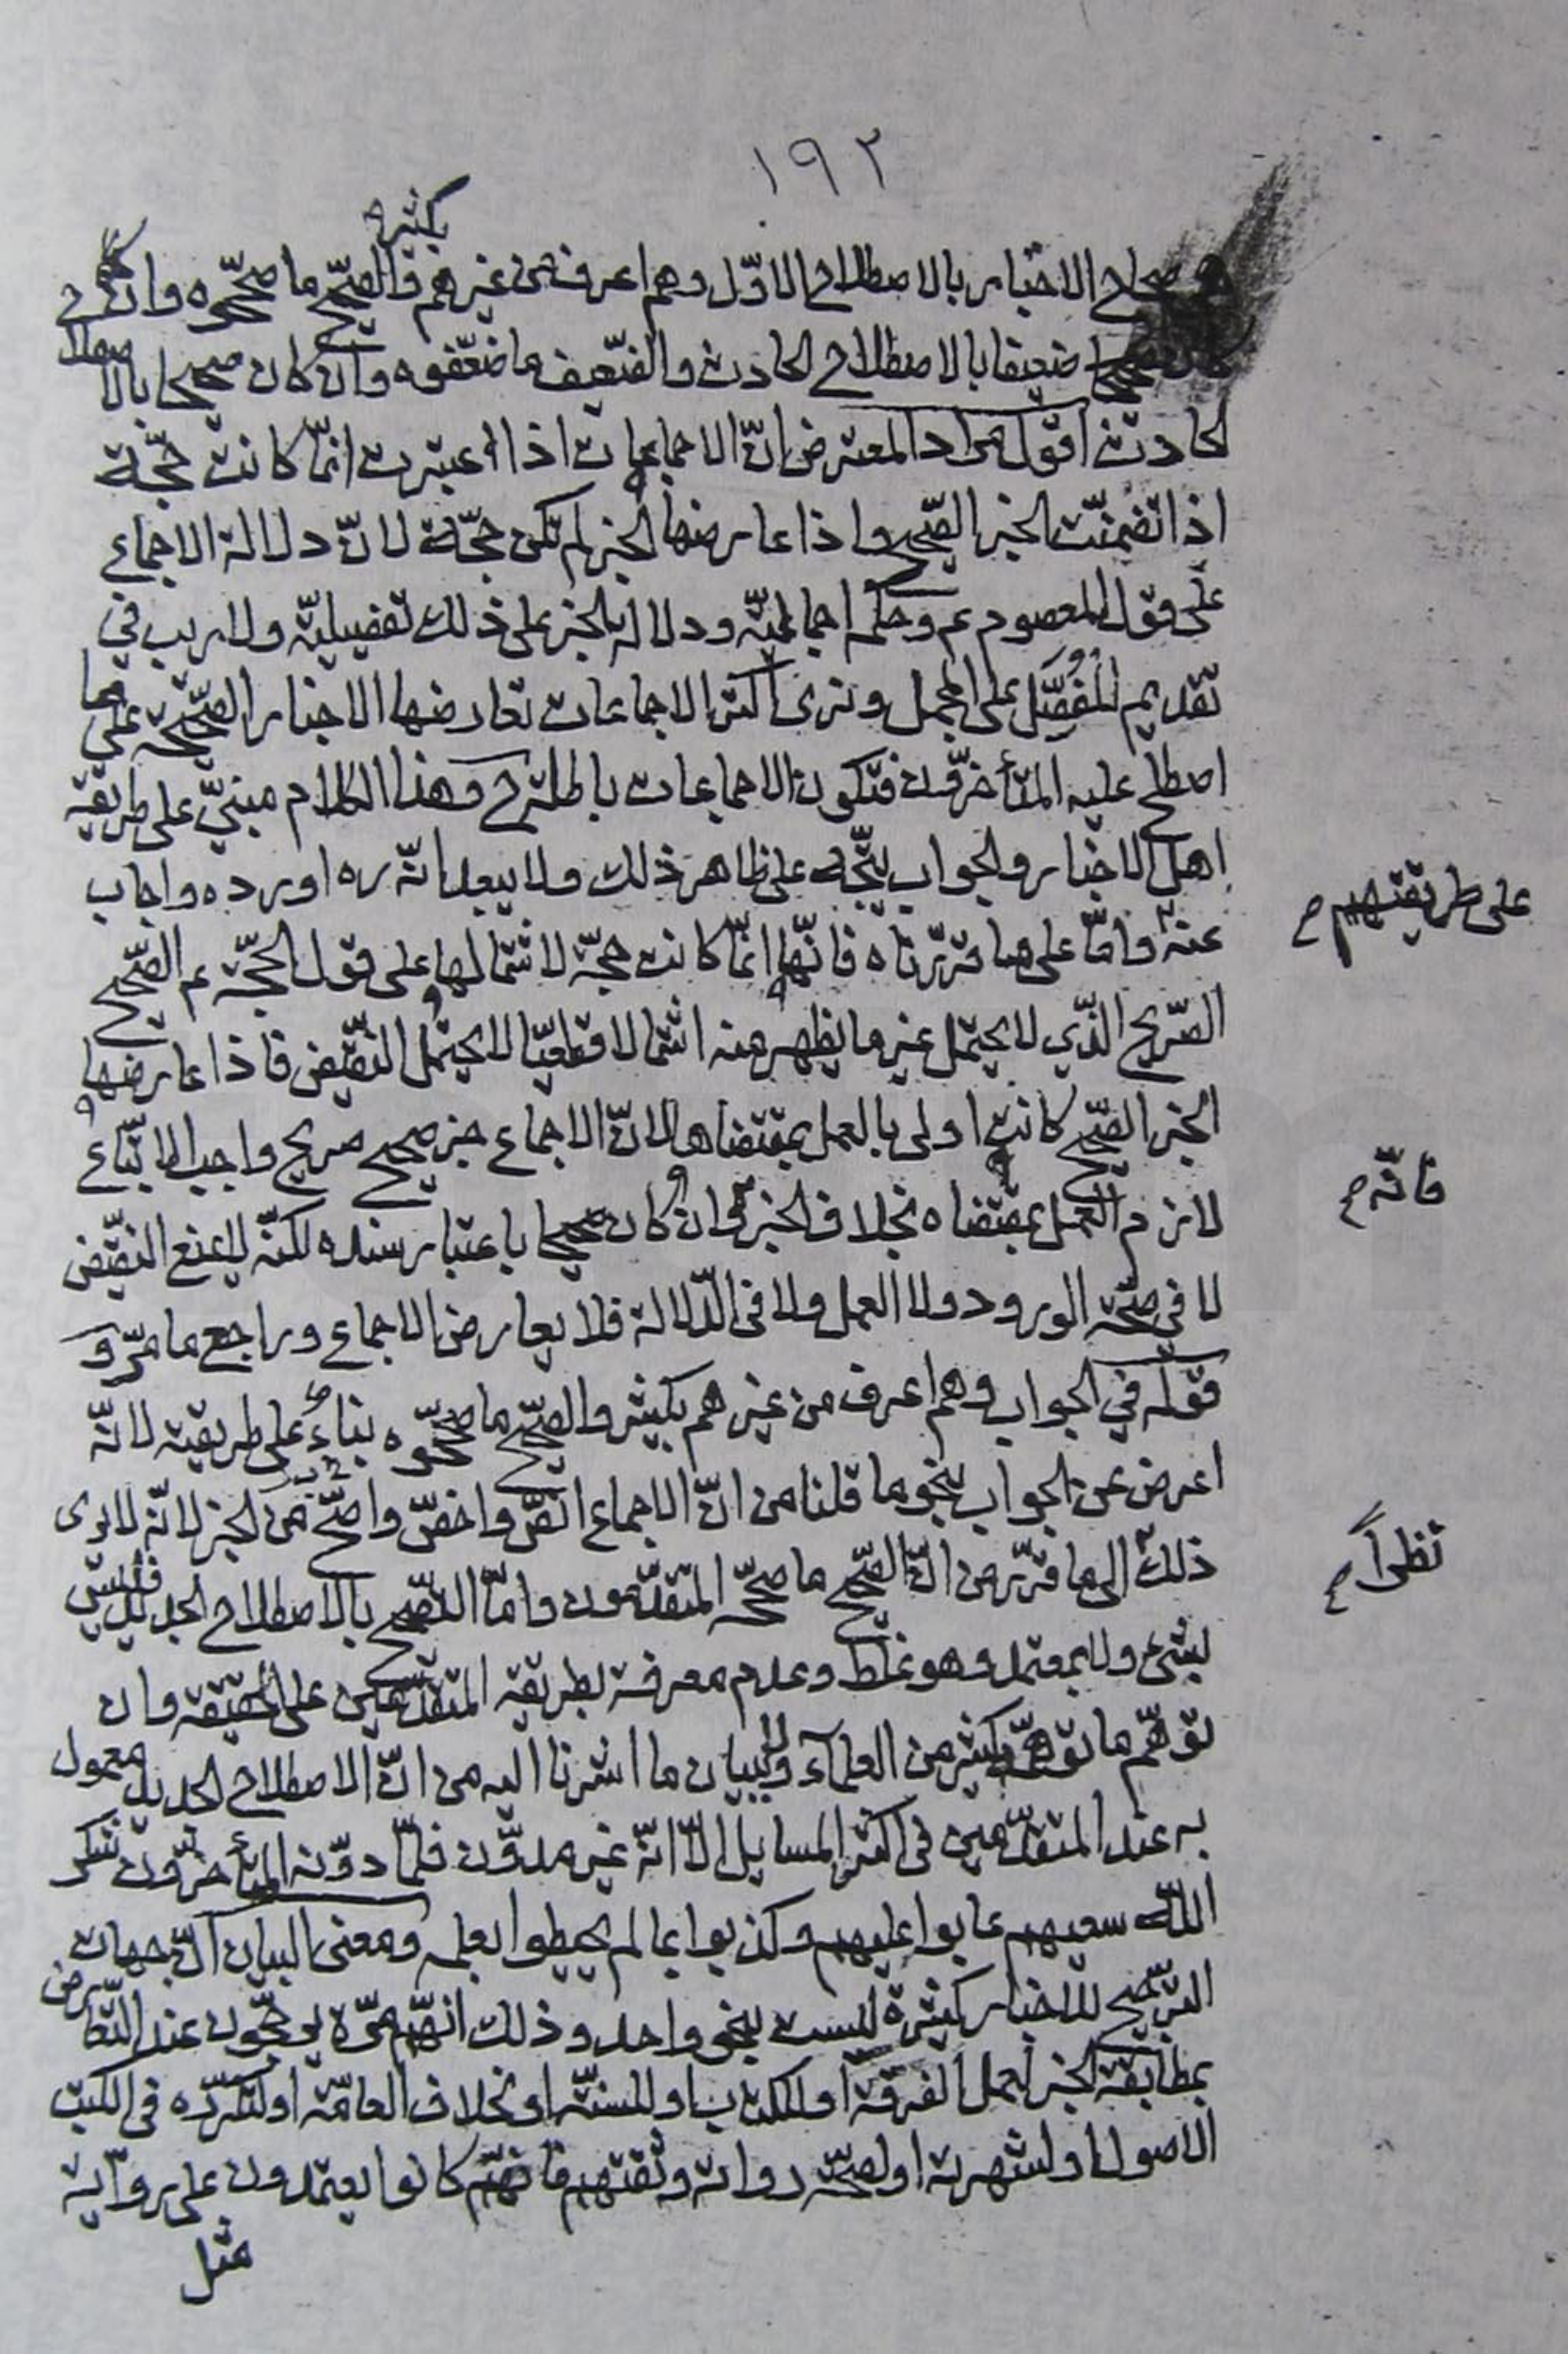 ١٩٢
بكثير
صحاح الاخبار بالاصطلاح الاوّل وهم اعرف من غيرهم فالصّحيح ما صحّحوه وان
كان ضعيفا بالاصطلاح الحادث والضّعيف ما ضعّفوه وان كان صحيحا بالاصطلاح
الحادث اقول مراد المعترض انّ الاجماعات اذا اعتبرت انّما كانت حجّة
اذا تضمنّت الخبر الصّحيح واذا عارضها الخبر لم تكن حجّة لانّ دلالة الاجماع
على قول المعصوم عم وحكمه اجماليّة ودلالة الخبر على ذلك تفصيليّة ولا ريب في
تقديم المُفصَّل على المجمل ونرى اكثر الاجماعات تعارضها الاخبار الصّحيحة على ما
اصطلح عليه المتأخرّون فتكون الاجماعات باطلة وهذا الكلام مبنيّ على طريقة
اهل الاخبار والجواب يتّجه على ظاهر ذلك ولا يبعد انّه ره اورده واجاب
عنه على طريقتهم وامّا على ما قرّرناه فانّها انّما كانت حجّة لاشتمالها على قول الحجّة عم الصّحيح
الصّريح الّذي لا يحتمل غير ما يظهر منه اشتمالا قطعيّا لا يحتمل النقيض فاذا عارضها
الخبر الصّحيح كانت اولى بالعمل بمقتضاها لانّ الاجماع خبر صحيح صريح واجب الاتّباع
لازم العمل بمقتضاه بخلاف الخبر فانّه وان كان صحيحا باعتبار سنده لكنّه لا يمنع النقيض
لا في صحّة الورود ولا العمل ولا في الدّلالة فلا يعارض الاجماع وراجع ما مرّ و
قوله في الجواب وهم اعرف من غيرهم بكثير والصّحيح ما صحّحوه بناءً على طريقته لانّه
اعرض عن الجواب بنحو ما قلنا من انّ الاجماع انصّ واخصّ واصحّ من الخبر لانّه لا يرى
ذلك نظراً الى ما قرّر من انّ الصّحيح ما صحّحه المتقدّمون وامّا التصّحيح بالاصطلاح الجديد فليس
بشيء ولا بمعتمد وهو غلط وعدم معرفة بطريقة المتقدّمين على الحقيقة وان
توهّم ما توهّم كثير من العلمآء والبيان ما اشرنا اليه من انّ الاصطلاح الجديد معمول
به عند المتقدّمين في اكثر المسايل الّا انّه غير مدوّن فلمّا دوّنه المتأخرّون شكر
اللّه سعيهم عابوا عليهم وكذبوا بما لم يحيطوا بعلمه ومعنى البيان انّ جهات
التّرجيح للاخبار كثيرة ليست بنحو واحد وذلك انّهم مرّة يرجّحون عند التّعارض
بمطابقة الخبر لعمل الفرقة او للكتاب او للسنّة او بخلاف العامّة او لتكرّره في الكتب
الاصول او لشهرته او لصحّة رواته وثقتهم فانّهم كانوا يعتمدون على رواية
مثل